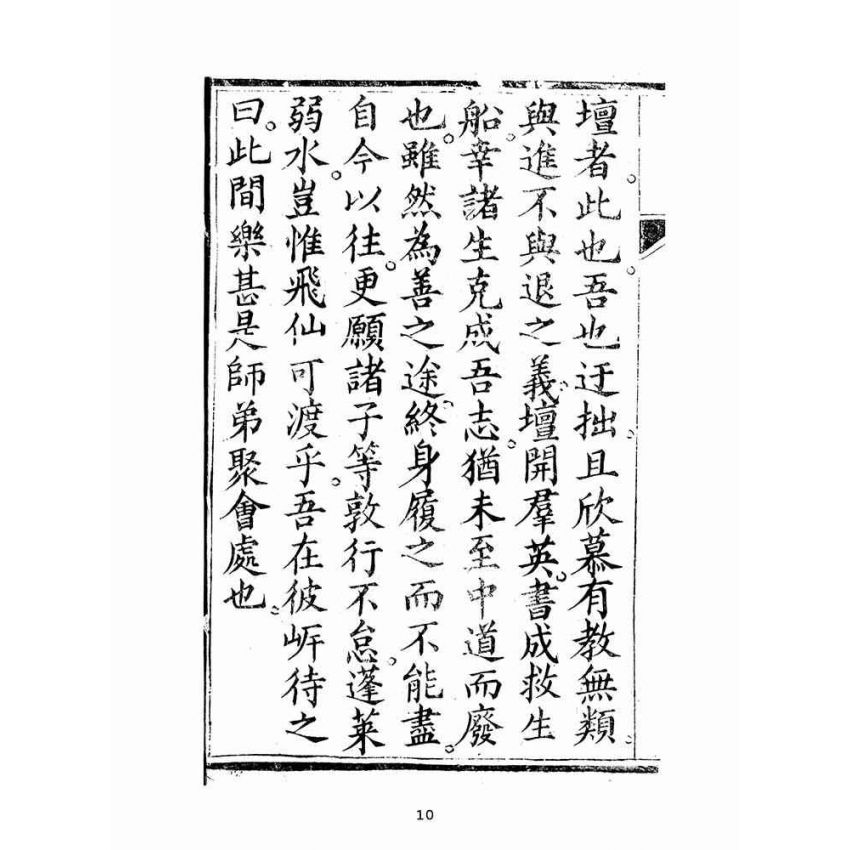 壇者。此也。吾也迂拙。且欣慕有教無類。
與進不與退之義。壇開羣英。書成救生
船。幸諸生克成吾志。猶未至中道而廢
也。雖然為善之途。終身履之而不能盡。
自今以往。更願諸子等敦行不怠。蓬萊
弱水。豈惟飛仙可渡乎。吾在彼岍待之
曰。此間樂甚。是師弟聚會處也。
10